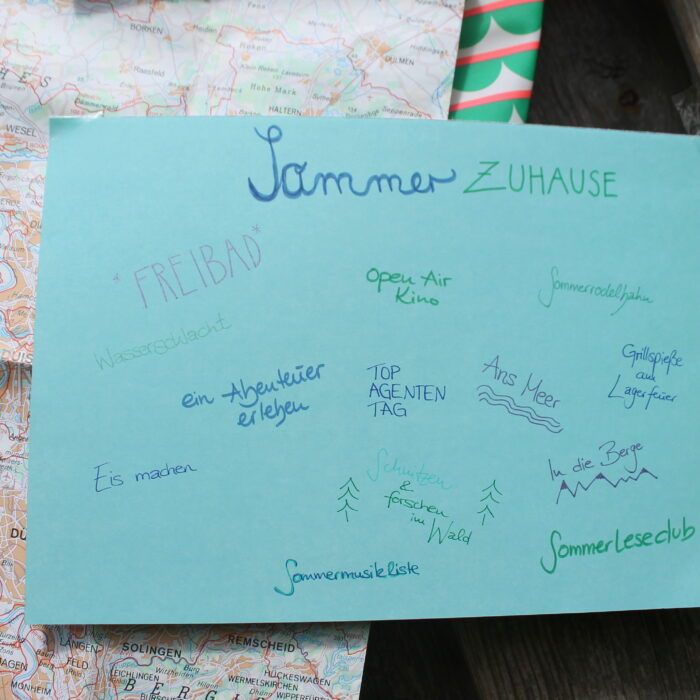 BORKEN
Raesfeld
Reken
Hohe Mark
DÜLMEN
HALTERN
Dämmerwald
WESEL
Sommer ZUHAUSE
*FREIBAD*
Open Air
Kino
Sommerrodelbahn
Wasserschlacht
ein Abenteuer
erleben
TOP
AGENTEN
TAG
Ans Meer
Grillspieße
am
Lagerfeuer
Eis machen
Schnitzen
&
forschen
im
Wald
In die Berge
Sommermusikliste
Sommerleseclub
DUIS
DÜ
LANGEN
FELD
SOLINGEN
REMSCHEID
LEICHLINGEN
Burg
HÜCKESWAGEN
WERMELSKIRCHEN
MONHEIM
HAGEN